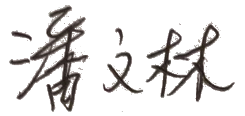 潘文林